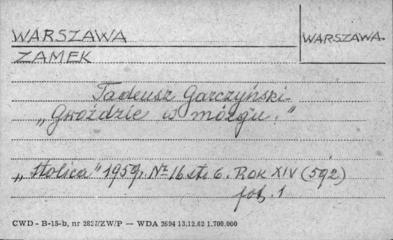 WARSZAWA
WARSZAWA.
ZAMEK
Tadeusz Garczyński
„Gwoździe w mózgu."
„Stolica" 1959, Nr 16 str. 6. ROK XIV (592)
fot. 1
CWD - B-15-b, nr 2827/ZW/P — WDA 2694 13.12.62 1.700.000